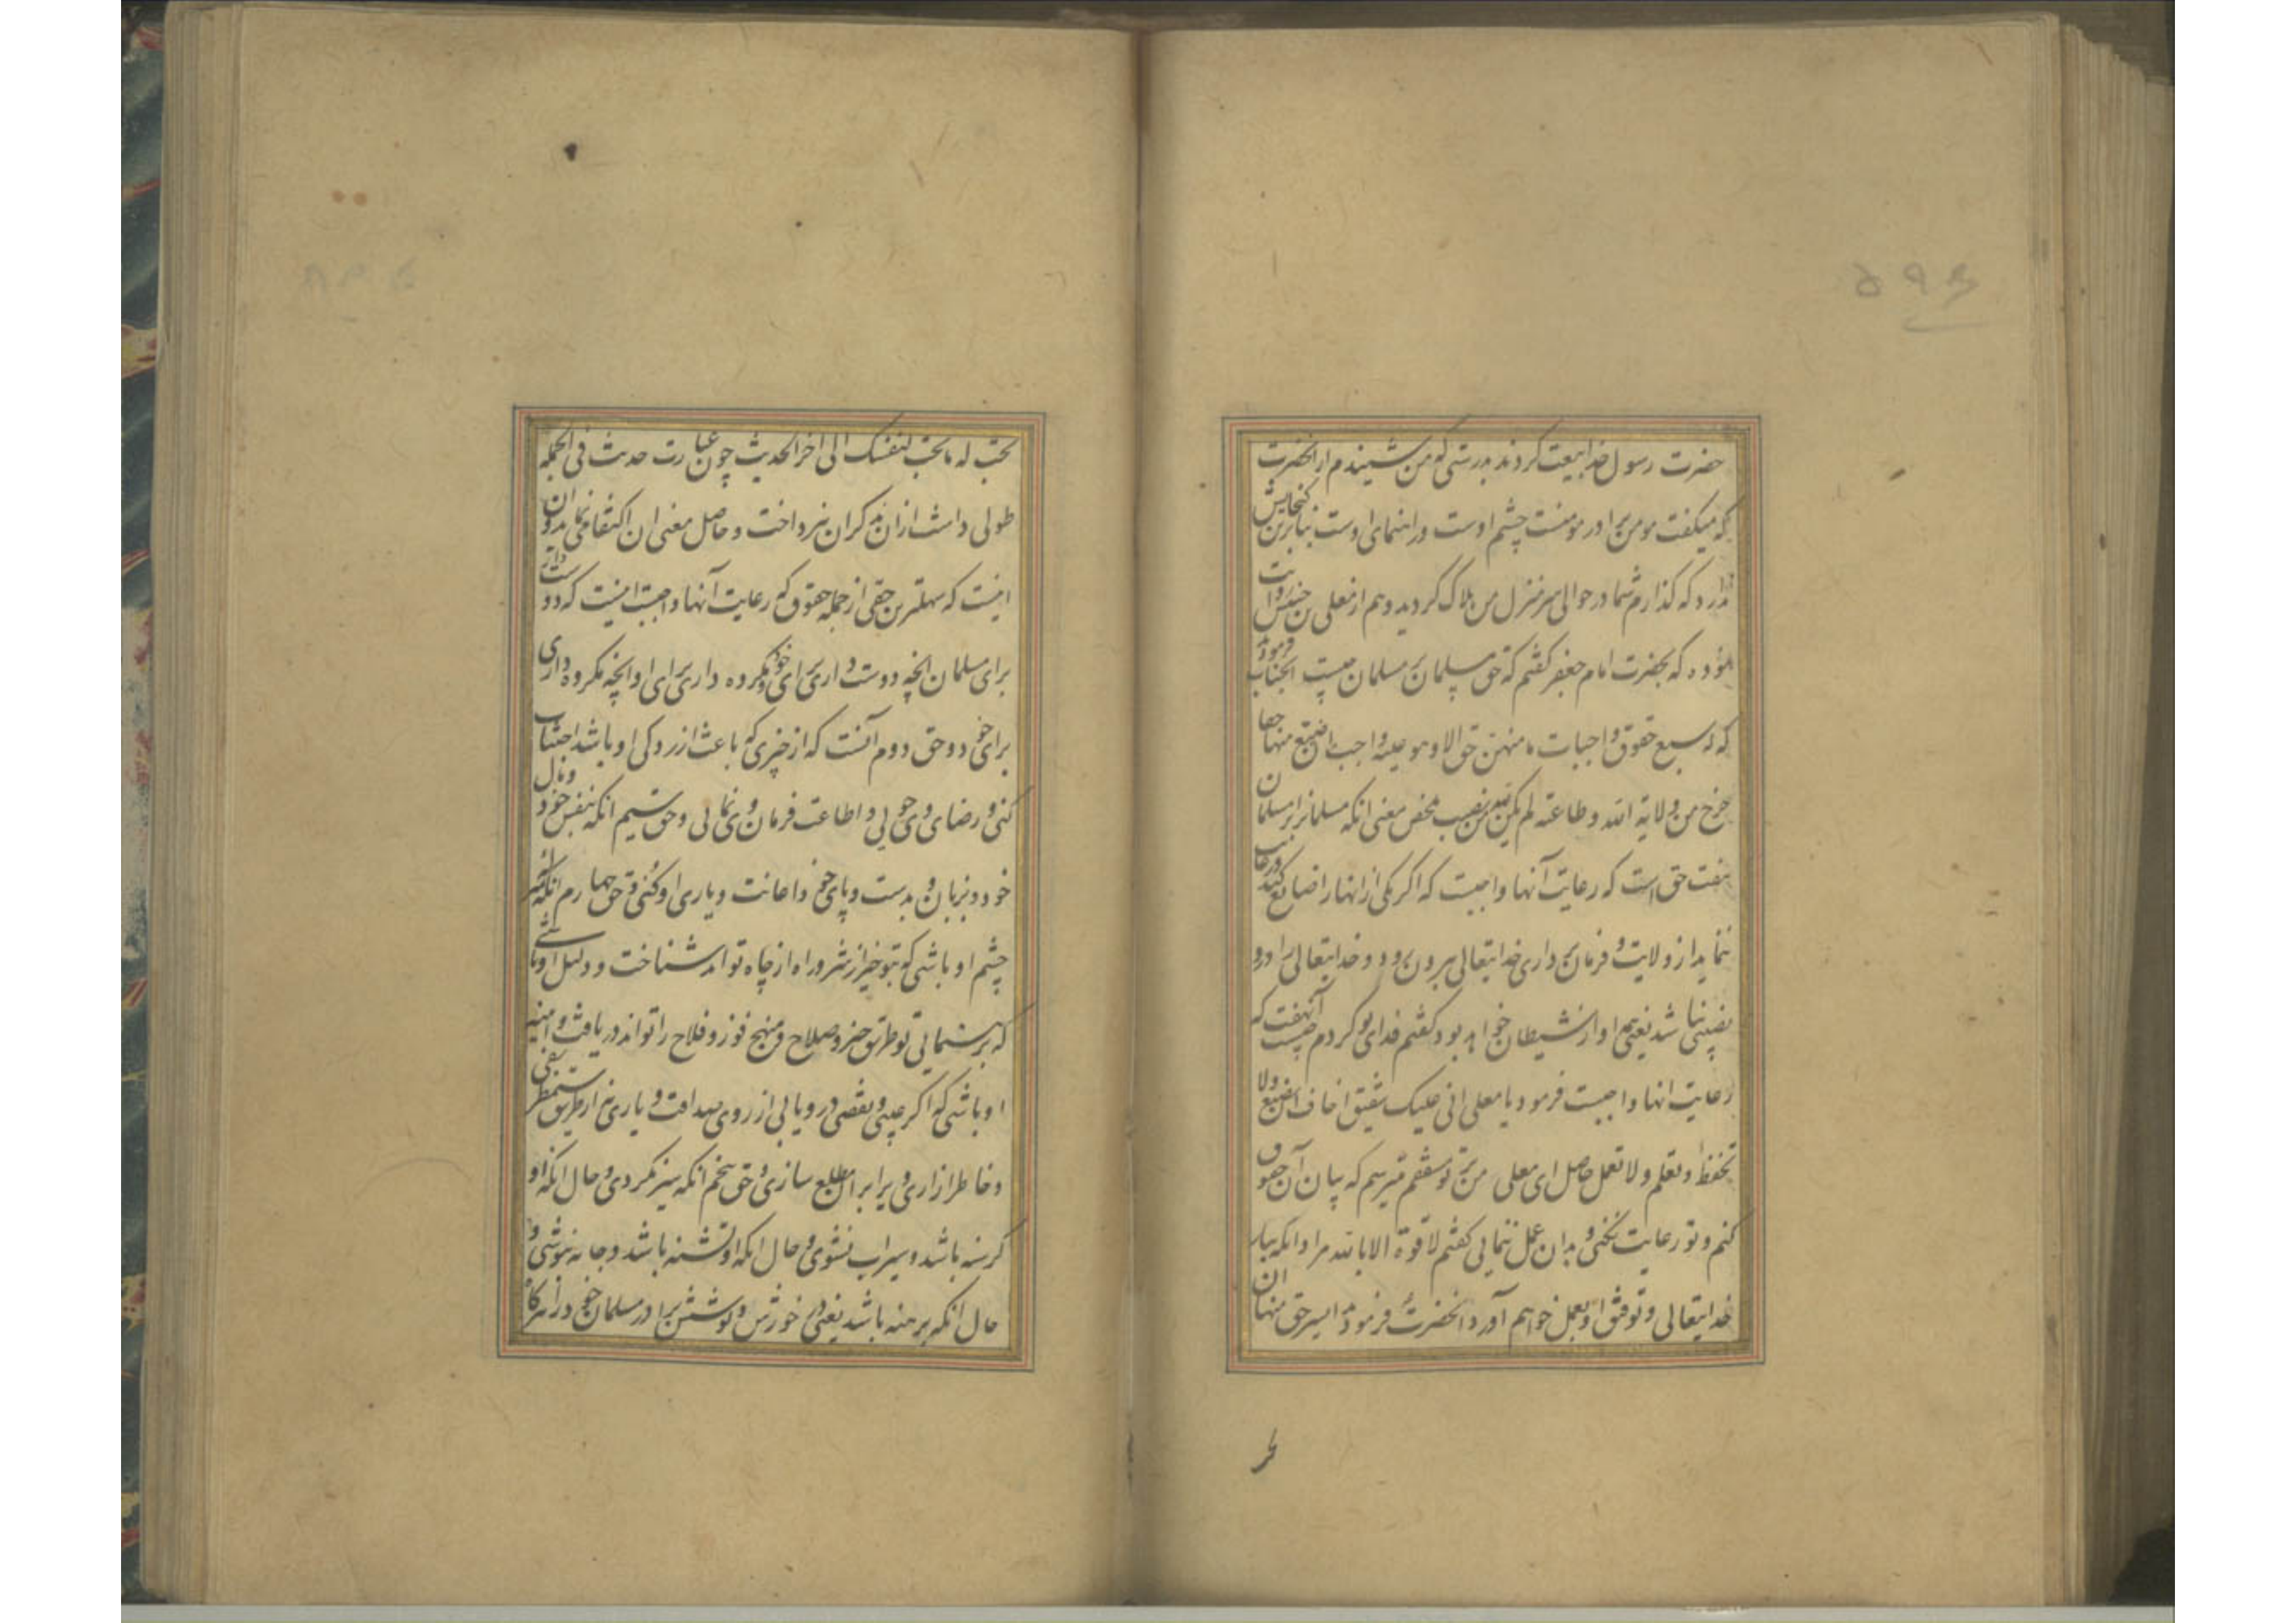 حضرت رسول خدا بیعت کردند بدرستی که من شنیدم از انحضرت
که میکفت مومن برادر مومنست چشم اوست و راهنمای اوست بنابرین کنجایش
ندارد که کذارم شما در حوالی سرمنزل من هلاک کردید و هم از معلی بن خنیس روایت
نموده که بحضرت امام جعفر کفتم که حق مسلمان بر مسلمان چیست انجناب فرمودند
که له سبع حقوق واجبات ما منهن حق الا و هو علیه واجب ان ضیع منها حقا
خرج من ولایة الله و طاعته لم یکن لله فیه من نصیب محض معنی انکه مسلمانرا بر مسلمان
هفت حق است که رعایت آنها واجبست که اکر یکی از انها را ضایع کند و رعایت
ننماید از ولایت و فرمان برداری خدایتعالی بیرون رود و خدایتعالی را در او
نصیبی نباشد یعنی او از شیطان خواهد بود کفتم فدای تو کردم چیست آن هفت که
رعایت انها واجبست فرمود یا معلی انی علیک شفیق اخاف ان تضیع و لا
تحفظ و تعلم و لا تعمل حاصل ای معلی من بر تو مشفقم میترسم که بیان آن حقوق
کنم و تو رعایت نکنی و بدان عمل ننمایی کفتم لا قوة الا بالله مراد انکه بیاری
خدایتعالی و توفیق او بعمل خواهم آورد انحضرت فرمود ایسر حق منها ان
تحب
تحب له ما تحب لنفسک الی اخر الحدیث چون عبارت حدیث فی الجمله
طولی داشت از ان بذکر ان نپرداخت و حاصل معنی ان اکتفا می نماید و ان
اینست که سهلترین حقی از جمله حقوق که رعایت آنها واجبست اینست که دوست داری
برای مسلمان انچه دوست داری برای خود و مکروه داری برای او انچه مکروه داری
برای خود و حق دوم آنست که از چیزی که باعث ازردکی او باشد اجتناب
کنی و رضای وی جویی و اطاعت فرمان وی نمایی و حق سیم انکه بنفس خود و مال
خود و بزبان و بدست و پای خود اعانت و یاری او کنی و حق چهارم انکه
چشم او باشی که بتو خیر از شر و راه از چاه تواند شناخت و دلیل او باشی
که برهنمایی تو طریق خیر و صلاح و منهج فوز و فلاح را تواند دریافت و آینه
او باشی که اکر عیبی و نقصی در و یابی از روی صداقت و یاری نه از طریق
و خاطر ازاری ویرا بر ان مطلع سازی و حق پنجم انکه سیر نکردی و حال انکه او
کرسنه باشد و سیراب نشوی و حال انکه او تشنه باشد و جامه نپوشی و
حال انکه برهنه باشد یعنی در خورش و پوشش برادر مسلمان خود را شریک